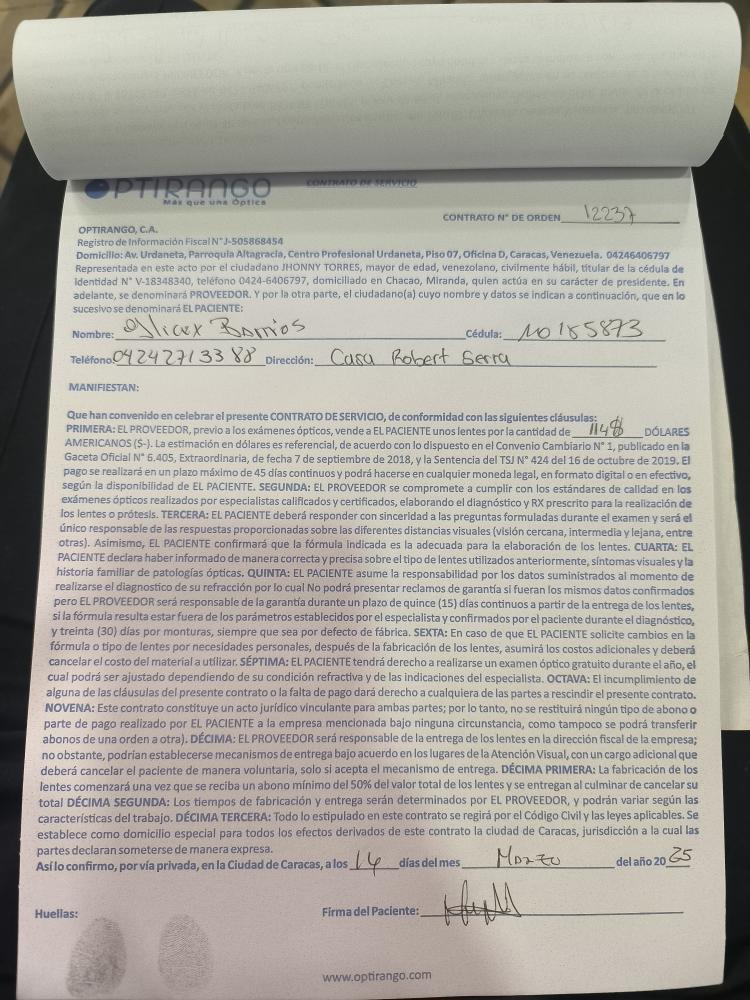 OPTIRANGO CONTRATO DE SERVICIO
Más que una Óptica
CONTRATO N° DE ORDEN 12237
OPTIRANGO, C.A.
Registro de Información Fiscal N°J-505868454
Domicilio: Av. Urdaneta, Parroquia Altagracia, Centro Profesional Urdaneta, Piso 07, Oficina D, Caracas, Venezuela. 04246406797
Representada en este acto por el ciudadano JHONNY TORRES, mayor de edad, venezolano, civilmente hábil, titular de la cédula de
Identidad N° V-18348340, teléfono 0424-6406797, domiciliado en Chacao, Miranda, quien actúa en su carácter de presidente. En
adelante, se denominará PROVEEDOR. Y por la otra parte, el ciudadano(a) cuyo nombre y datos se indican a continuación, que en lo
sucesivo se denominará EL PACIENTE:
Nombre: Barrios Cédula: 10185873
Teléfono: 04242713388 Dirección: Casa Robert Serra
MANIFIESTAN:
Que han convenido en celebrar el presente CONTRATO DE SERVICIO, de conformidad con las siguientes cláusulas:
PRIMERA: EL PROVEEDOR, previo a los exámenes ópticos, vende a EL PACIENTE unos lentes por la cantidad de 114$ DÓLARES
AMERICANOS (S-). La estimación en dólares es referencial, de acuerdo con lo dispuesto en el Convenio Cambiario N° 1, publicado en la
Gaceta Oficial N° 6.405, Extraordinaria, de fecha 7 de septiembre de 2018, y la Sentencia del TSJ N° 424 del 16 de octubre de 2019. El
pago se realizará en un plazo máximo de 45 días continuos y podrá hacerse en cualquier moneda legal, en formato digital o en efectivo,
según la disponibilidad de EL PACIENTE. SEGUNDA: EL PROVEEDOR se compromete a cumplir con los estándares de calidad en los
exámenes ópticos realizados por especialistas calificados y certificados, elaborando el diagnóstico y RX prescrito para la realización de
los lentes o prótesis. TERCERA: EL PACIENTE deberá responder con sinceridad a las preguntas formuladas durante el examen y será el
único responsable de las respuestas proporcionadas sobre las diferentes distancias visuales (visión cercana, intermedia y lejana, entre
otras). Asimismo, EL PACIENTE confirmará que la fórmula indicada es la adecuada para la elaboración de los lentes. CUARTA: EL
PACIENTE declara haber informado de manera correcta y precisa sobre el tipo de lentes utilizados anteriormente, síntomas visuales y la
historia familiar de patologías ópticas. QUINTA: EL PACIENTE asume la responsabilidad por los datos suministrados al momento de
realizarse el diagnostico de su refracción por lo cual No podrá presentar reclamos de garantía si fueran los mismos datos confirmados
pero EL PROVEEDOR será responsable de la garantía durante un plazo de quince (15) días continuos a partir de la entrega de los lentes,
si la fórmula resulta estar fuera de los parámetros establecidos por el especialista y confirmados por el paciente durante el diagnóstico,
y treinta (30) días por monturas, siempre que sea por defecto de fábrica. SEXTA: En caso de que EL PACIENTE solicite cambios en la
fórmula o tipo de lentes por necesidades personales, después de la fabricación de lentes, asumirá los costos adicionales y deberá
cancelar el costo del material a utilizar. SÉPTIMA: EL PACIENTE tendrá derecho a realizarse un examen óptico gratuito durante el año, el
cual podrá ser ajustado dependiendo de su condición refractiva y de las indicaciones del especialista. OCTAVA: El incumplimiento de
alguna de las cláusulas del presente contrato o la falta de pago dará derecho a cualquiera de las partes a rescindir el presente contrato.
NOVENA: Este contrato constituye un acto jurídico vinculante para ambas partes; por lo tanto, no se restituirá ningún tipo de abono o
parte de pago realizado por EL PACIENTE a la empresa mencionada bajo ninguna circunstancia, como tampoco se podrá transferir
abonos de una orden a otra). DÉCIMA: EL PROVEEDOR será responsable de la entrega de los lentes en la dirección fiscal de la empresa;
no obstante, podrían establecerse mecanismos de entrega bajo acuerdo en los lugares de la Atención Visual, con un cargo adicional que
deberá cancelar el paciente de manera voluntaria, solo si acepta el mecanismo de entrega. DÉCIMA PRIMERA: La fabricación de los
lentes comenzará una vez que se reciba un abono mínimo del 50% del valor total de los lentes y se entregan al culminar de cancelar su
total DÉCIMA SEGUNDA: Los tiempos de fabricación y entrega serán determinados por EL PROVEEDOR, y podrán variar según las
características del trabajo. DÉCIMA TERCERA: Todo lo estipulado en este contrato se regirá por el Código Civil y las leyes aplicables. Se
establece como domicilio especial para todos los efectos derivados de este contrato la ciudad de Caracas, jurisdicción a la cual las
partes declaran someterse de manera expresa.
Así lo confirmo, por vía privada, en la Ciudad de Caracas, a los 14 días del mes Marzo del año 2025
Huellas: Firma del Paciente:
www.optirango.com